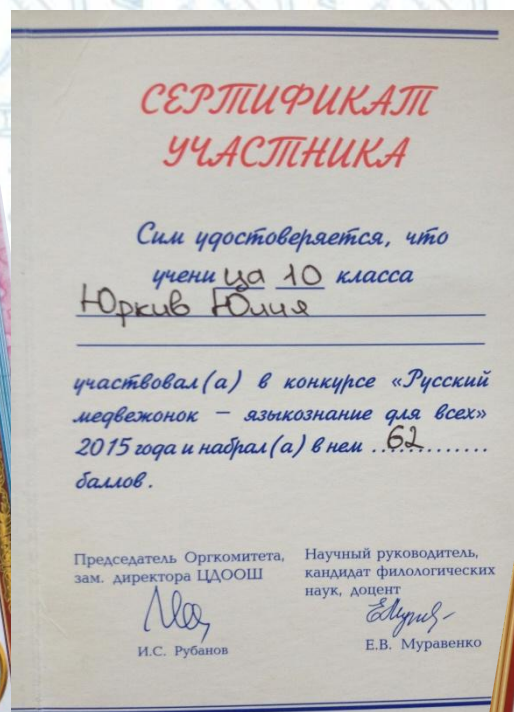 СЕРТИФИКАТ
УЧАСТНИКА
Сим удостоверяется, что
учени ца 10 класса
Юркив Юлия
участвовал(а) в конкурсе «Русский
медвежонок – языкознание для всех»
2015 года и набрал(а) в нем ...62.............
баллов.
Председатель Оргкомитета,
зам. директора ЦДООШ
И.С. Рубанов
Научный руководитель,
кандидат филологических
наук, доцент
Е.В. Муравенко